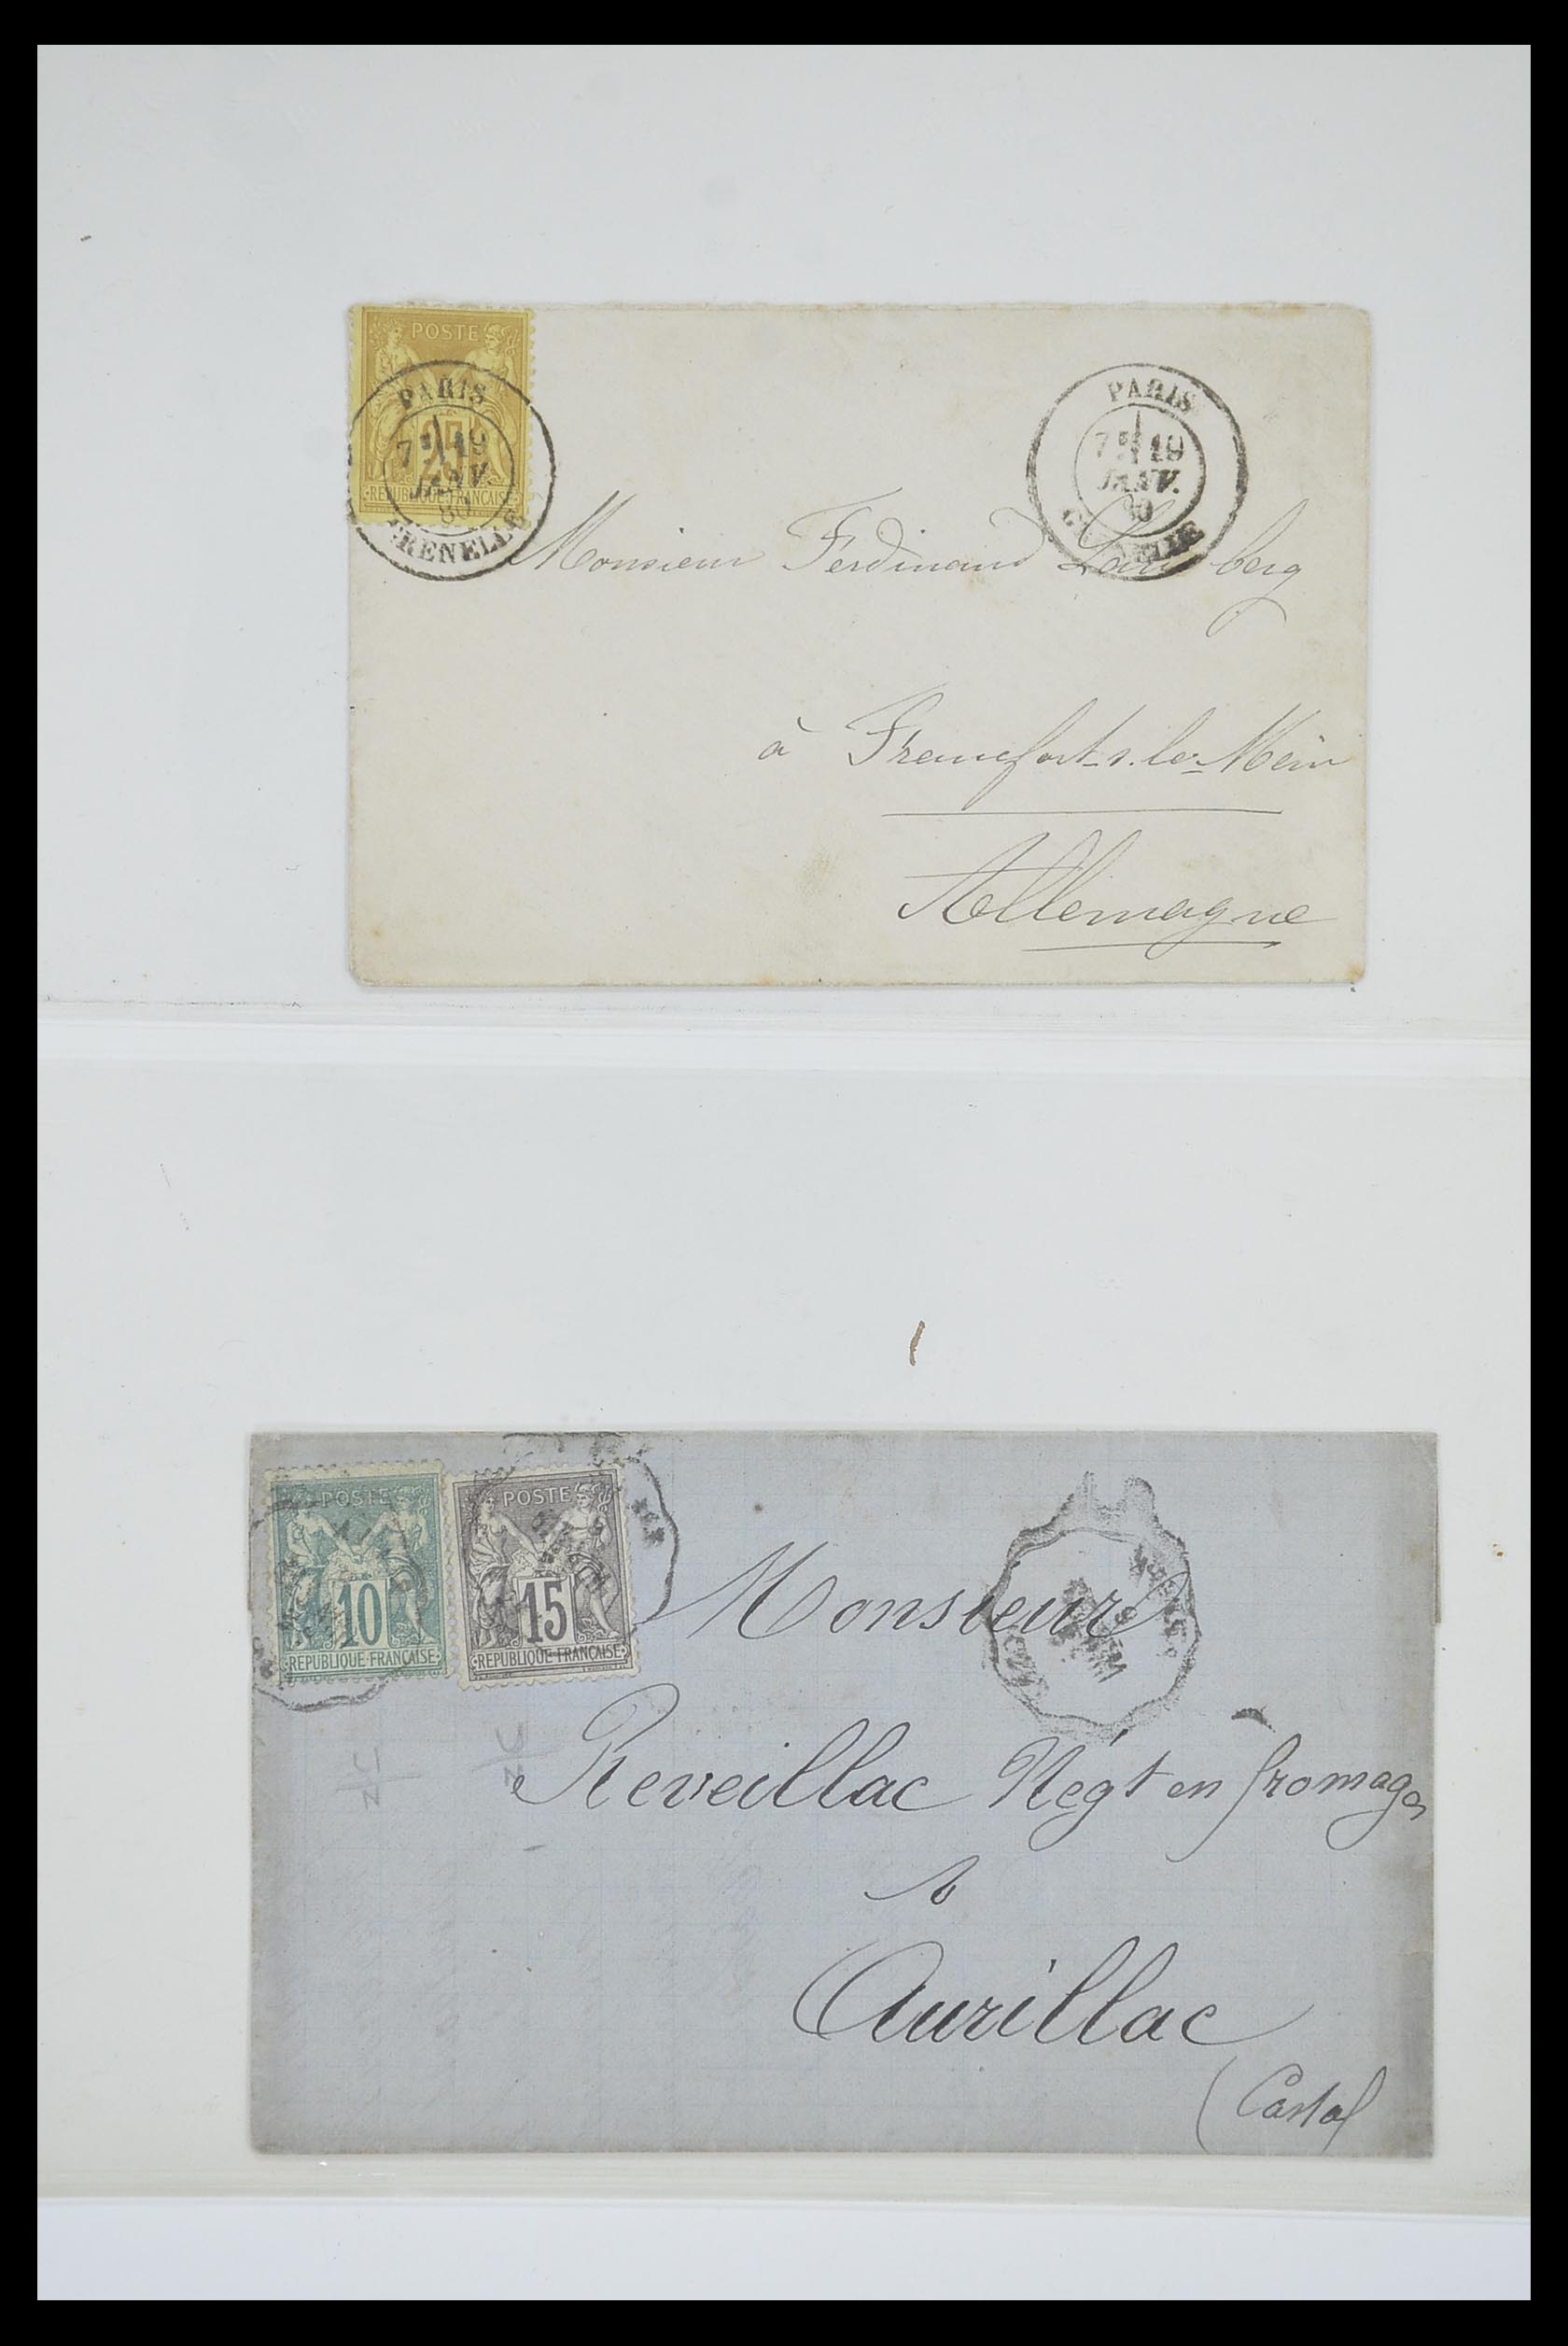 POSTE
25
REPUBLIQUE FRANÇAISE
PARIS
7E 19
JANV.
80
GRENELLE
PARIS
7E 19
JANV.
80
GRENELLE
Monsieur Ferdinand
à Francfort s. le Mein
Allemagne
POSTE
10
REPUBLIQUE FRANÇAISE
POSTE
15
REPUBLIQUE FRANÇAISE
Monsieur
Reveillac Négt en fromages
à
Aurillac
(Cantal
N/C
N/C